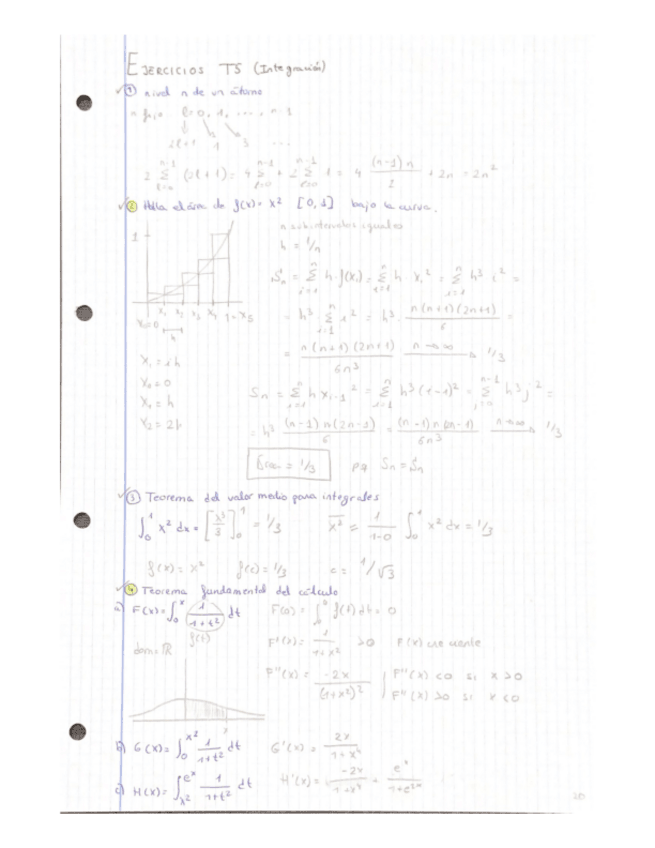 EJERCICIOS T5 (Integración)
① nivel n de un átomo
n fijo l=0, 1, ..., n-1
2l+1 1 3 ...
2 Σ_{l=0}^{n-1} (2l+1) = 4 Σ_{l=0}^{n-1} l + 2 Σ_{l=0}^{n-1} 1 = 4 (n-1) n / 2 + 2n = 2n²
② Halla el área de f(x) = x² [0,1] bajo la curva.
n subintervalos iguales
h = 1/n
1
S'n = Σ_{i=1}^{n} h·f(xi) = Σ_{i=1}^{n} h xi² = Σ_{i=1}^{n} h³ i² =
= h³ Σ_{i=1}^{n} i² = h³ · n(n+1)(2n+1) / 6 =
x0=0 x1 x2 x3 x4 1=x5
h
= n(n+1)(2n+1) / 6n³ n→∞ 1/3
xi = ih
x0 = 0
x1 = h
x2 = 2h
Sn = Σ_{i=1}^{n} h xi-1² = Σ_{i=1}^{n} h³ (i-1)² = Σ_{j=0}^{n-1} h³ j² =
= h³ (n-1) n (2n-1) / 6 = (n-1) n (2n-1) / 6n³ n→∞ 1/3
= 1/3 pq Sn = S'n
③ Teorema del valor medio para integrales
∫₀¹ x² dx = [x³/3]₀¹ = 1/3 x² = 1/(1-0) ∫₀¹ x² dx = 1/3
f(x) = x² f(c) = 1/3 c = 1/√3
④ Teorema fundamental del cálculo
a) F(x) = ∫₀ˣ 1/(1+t²) dt F(0) = ∫₀⁰ f(t) dt = 0
f(t)
dom = ℝ
F'(x) = 1/(1+x²) >0 F(x) creciente
F''(x) = -2x/(1+x²)² F''(x) <0 si x>0
F''(x) >0 si x<0
x
b) G(x) = ∫₀^{x²} 1/(1+t²) dt G'(x) = 2x/(1+x⁴)
c) H(x) = ∫_{x²}^{eˣ} 1/(1+t²) dt H'(x) = -2x/(1+x⁴) + eˣ/(1+e²ˣ)
20